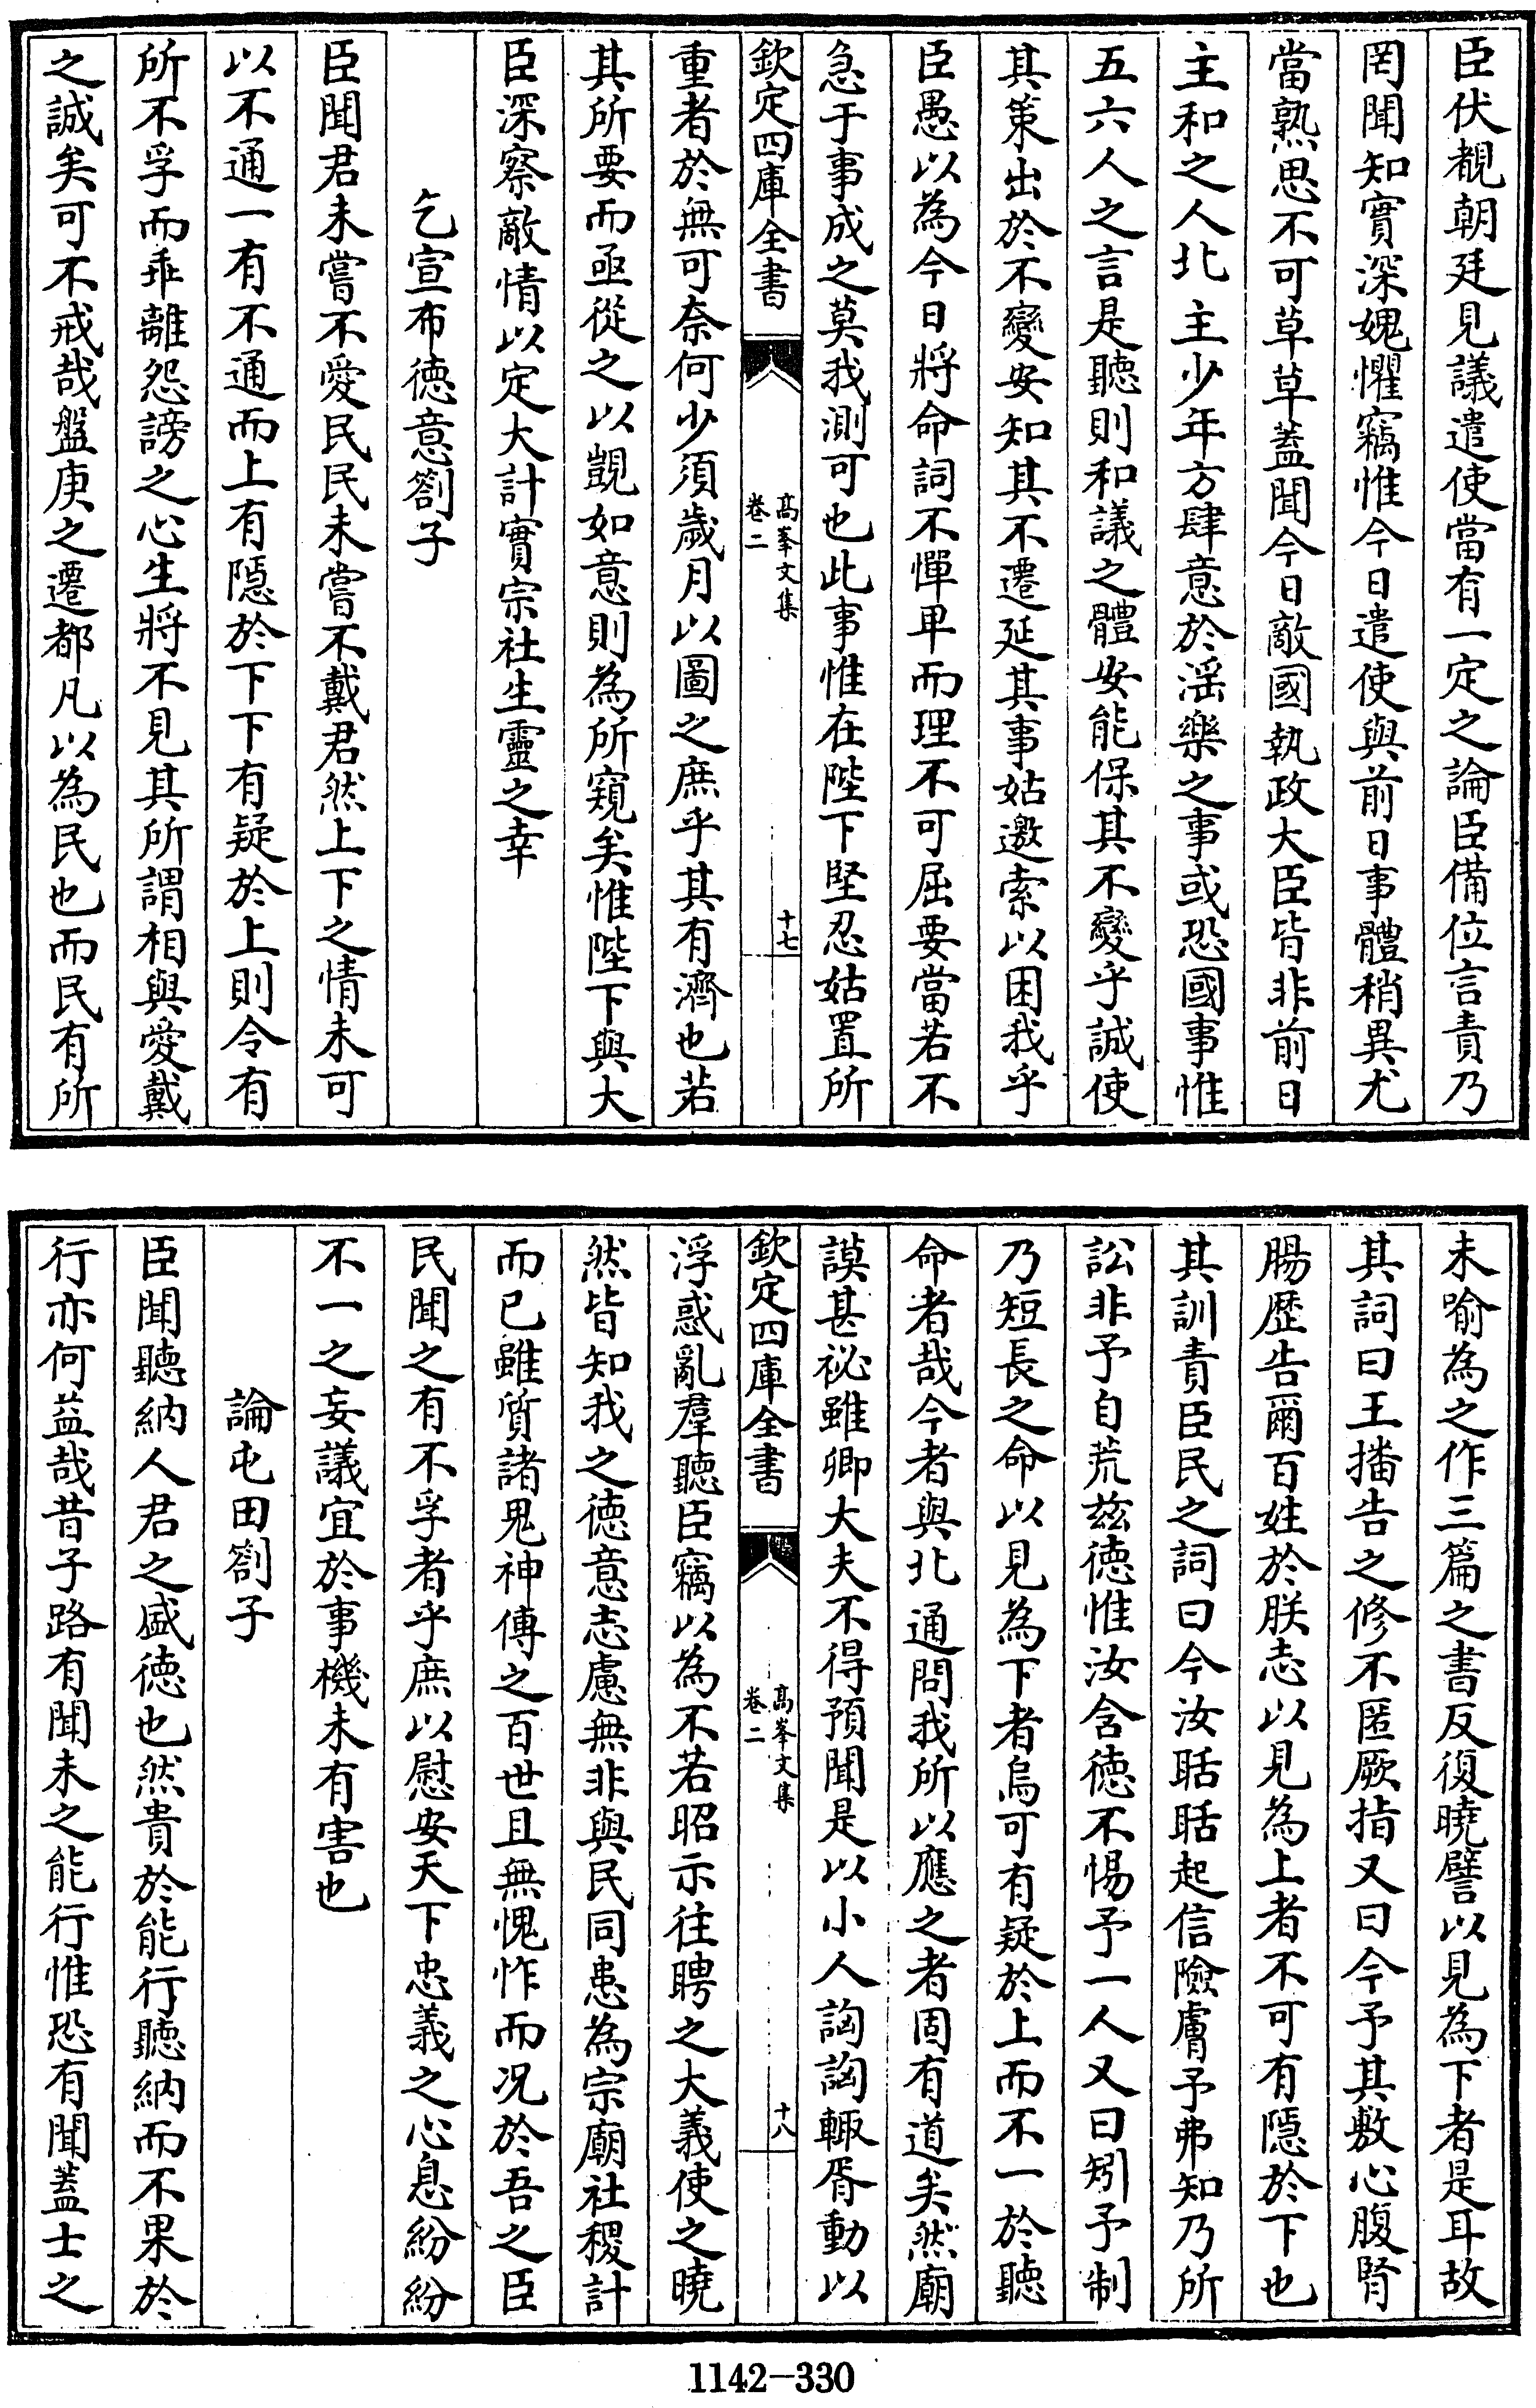 臣伏覩朝廷見議遣使當有一定之論臣備位言責乃
罔聞知實深媿懼竊惟今日遣使與前日事體稍異尤
當熟思不可草草蓋聞今日敵國執政大臣皆非前日
主和之人北主少年方肆意於滛樂之事或恐國事惟
五六人之言是聽則和議之體安能保其不變乎誠使
其策出於不變安知其不遷延其事姑邀索以困我乎
臣愚以為今日將命詞不憚卑而理不可屈要當若不
急于事成之莫我測可也此事惟在陛下堅忍姑置所
欽定四庫全書
髙峯文集
卷二
十七
重者於無可奈何少須歲月以圖之庶乎其有濟也若
其所要而亟從之以覬如意則為所窺矣惟陛下與大
臣深察敵情以定大計實宗社生靈之幸
乞宣布徳意劄子
臣聞君未嘗不愛民民未嘗不戴君然上下之情未可
以不通一有不通而上有隱於下下有疑於上則令有
所不孚而乖離怨謗之心生將不見其所謂相與愛戴
之誠矣可不戒哉盤庚之遷都凡以為民也而民有所
未喻為之作三篇之書反復曉譬以見為下者是耳故
其詞曰王播告之修不匿厥指又曰今予其敷心腹腎
腸歴告爾百姓於朕志以見為上者不可有隱於下也
其訓責臣民之詞曰今汝聒聒起信險膚予弗知乃所
訟非予自荒兹徳惟汝含徳不惕予一人又曰矧予制
乃短長之命以見為下者烏可有疑於上而不一於聽
命者哉今者與北通問我所以應之者固有道矣然廟
謨甚祕雖卿大夫不得預聞是以小人訩訩輙胥動以
欽定四庫全書
髙峯文集
卷二
十八
浮惑亂羣聽臣竊以為不若昭示往聘之大義使之曉
然皆知我之徳意志慮無非與民同患為宗廟社稷計
而已雖質諸鬼神傳之百世且無愧怍而况於吾之臣
民聞之有不孚者乎庶以慰安天下忠義之心息紛紛
不一之妄議宜於事機未有害也
論屯田劄子
臣聞聽納人君之盛徳也然貴於能行聽納而不果於
行亦何益哉昔子路有聞未之能行惟恐有聞蓋士之
1142-330